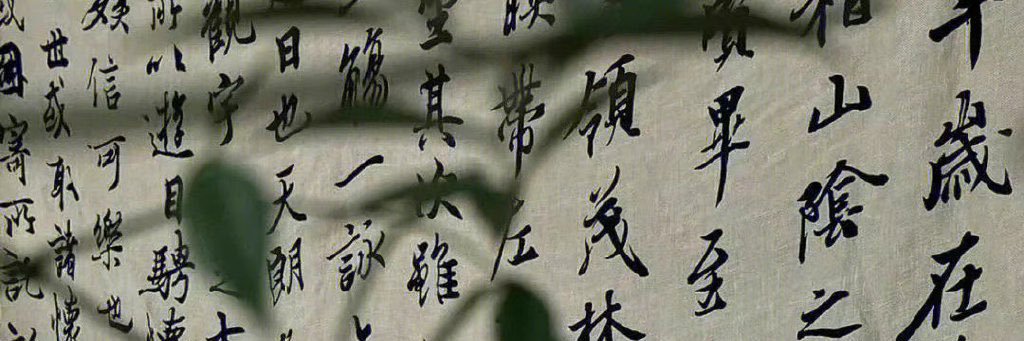 年歲在
稽山陰之
賢畢至
領茂林
映帶左
坐其次雖
觴一詠
日也天朗
觀宇之大
所以遊目騁懷
娛信可樂也
世或取諸懷
因寄所託